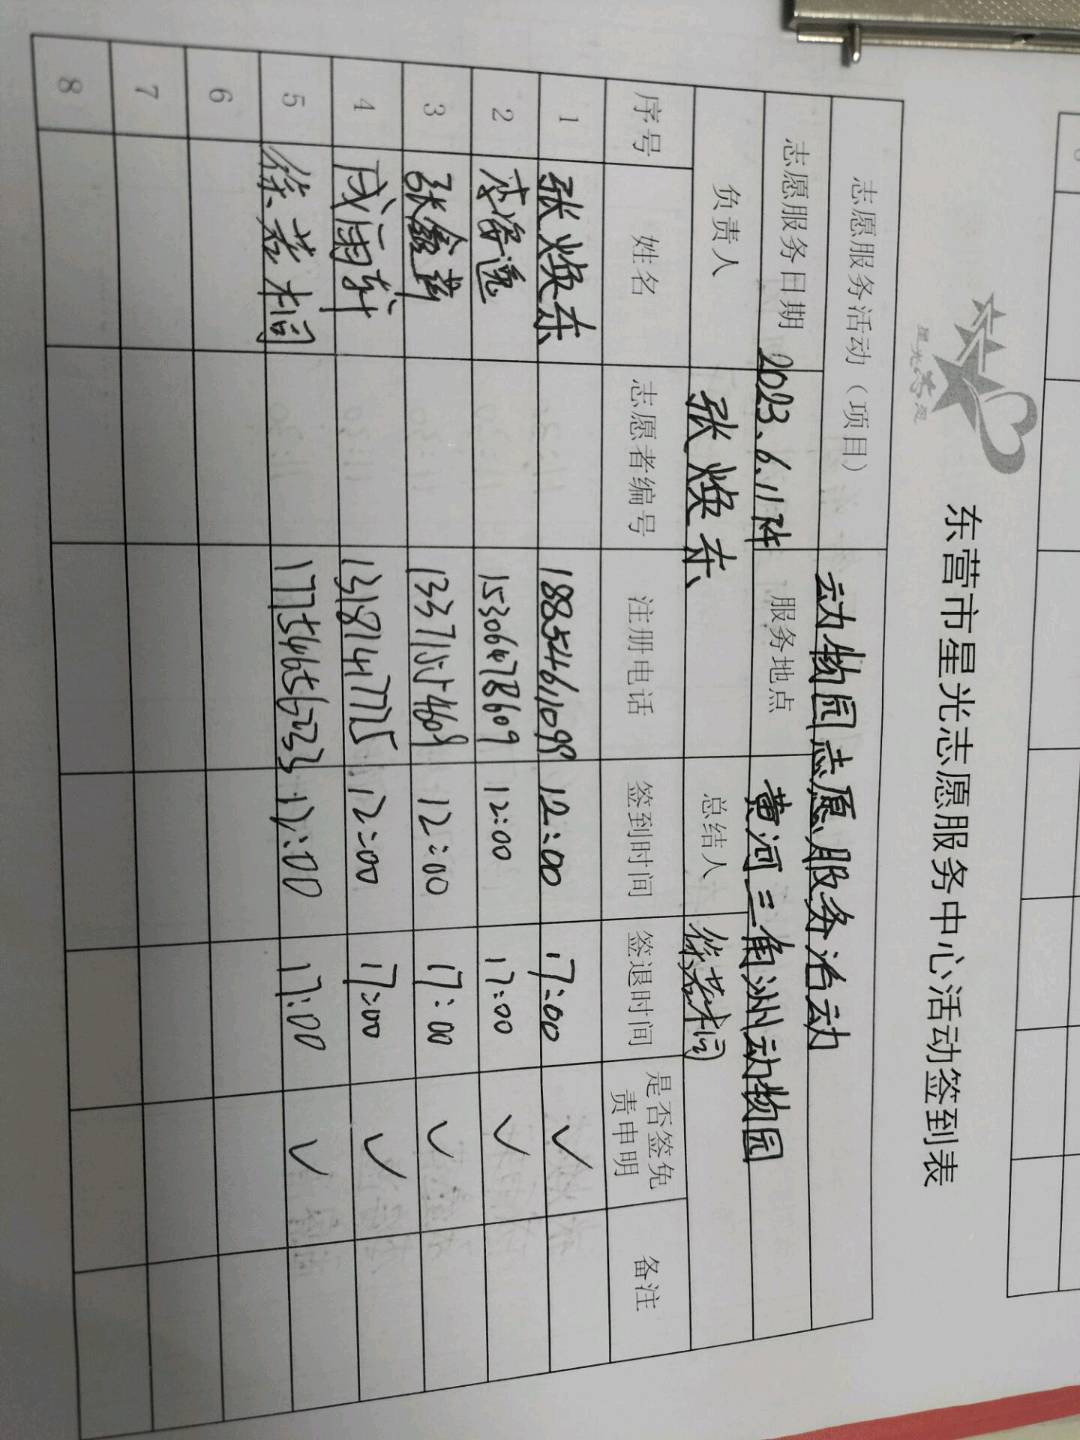 星光志愿
东营市星光志愿服务中心活动签到表
志愿服务活动（项目） 动物园志愿服务活动
志愿服务日期 2023.6.11下午 服务地点 黄河三角洲动物园
负责人 张焕东 总结人 徐若桐
序号 姓名 志愿者编号 注册电话 签到时间 签退时间 是否签免责申明 备注
1 张焕东 18854611099 12:00 17:00 ✓
2 李海逸 15306478609 12:00 17:00 ✓
3 张鑫 13371554609 12:00 17:00 ✓
4 成雨轩 13181417725 12:00 17:00 ✓
5 徐若桐 17754656233 12:00 17:00 ✓
6
7
8